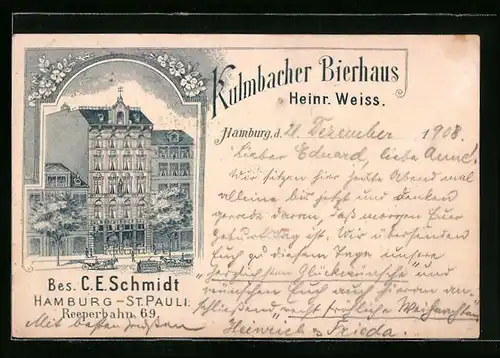 Kulmbacher Bierhaus
Heinr. Weiss.
Hamburg, d. 21. Dezember 1908.
Lieber Eduard, liebe Anne!
Wir sitzen hier heute Abend mal
alleine bis jetzt und denken
gerade daran, daß morgen Euer
Geburtstag ist. Wir übersenden
Euch zu diesem Tage unsere
herzlichsten Glückwünsche und
wünschen Euch auch hieran an-
schließend "recht fröhliche Weihnachten"
Heinrich u. Frieda.
Mit besten Grüßen
Bes. C. E. Schmidt
HAMBURG-ST. PAULI.
Reeperbahn. 69.